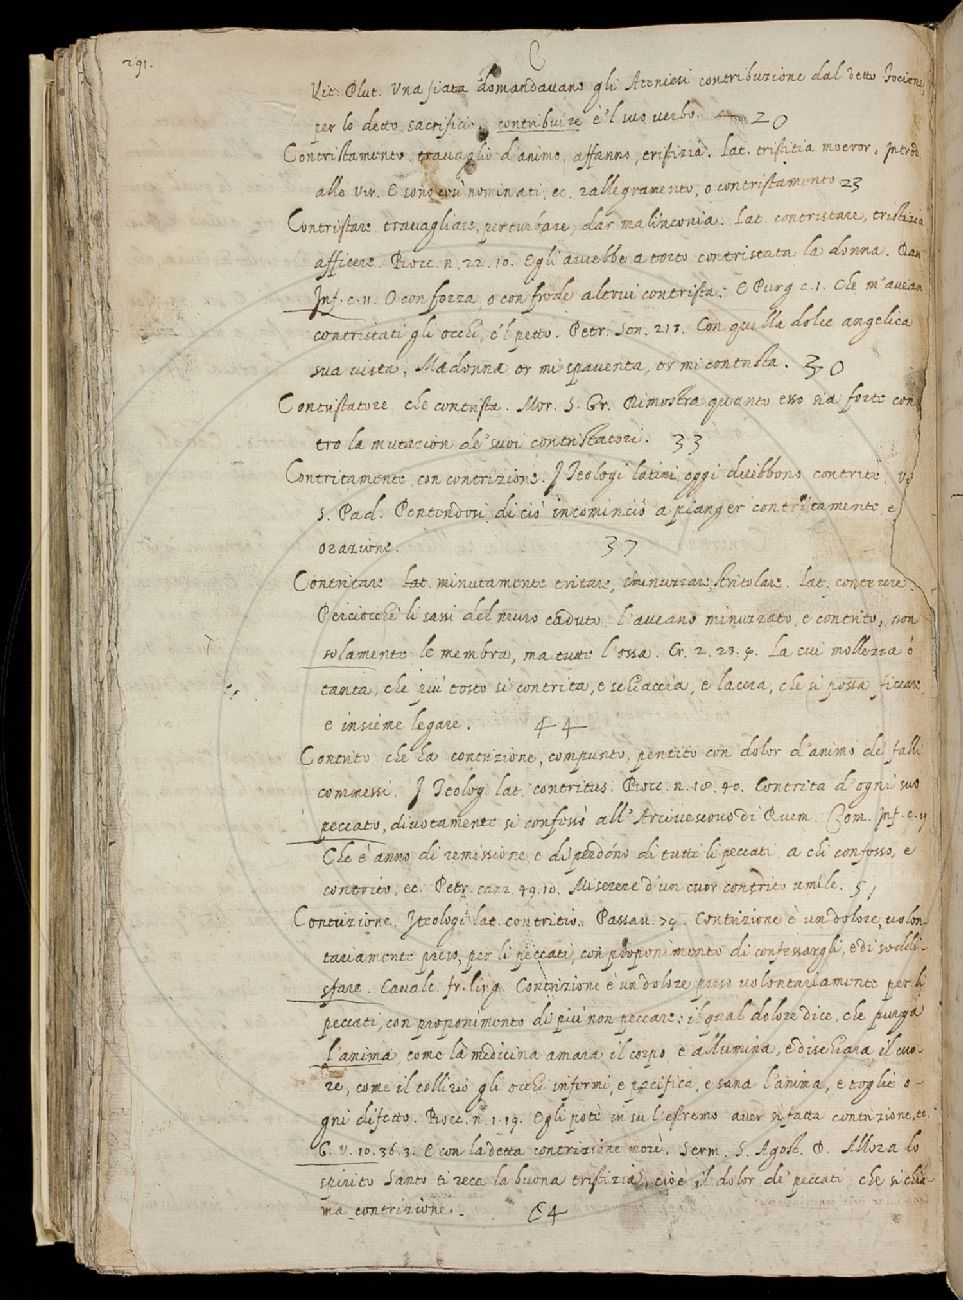 291.
C
Vit. Plut. Una fiata domandavano gli Ateniesi contribuzione dal detto Focione,
per lo detto sacrificio, contribuire è 'l suo verbo. 20
Contristamento. travaglio d'animo, affanno, tristizia. Lat. tristitia moeror. Introd.
alle Vir. E sono così nominati, ec. rallegramento, o contristamento 23
Contristare. travagliare, perturbare, dar malinconia. Lat. contristare, tristizia
afficere. Bocc. n. 22. 10. Egli avrebbe a torto contristata la donna. Dan
Inf. c. 11. O con forza, o con frode altrui contrista. E Purg c. 1. Che m'avean
contristati gli occhi, e 'l petto. Petr. Son. 217. Con quella dolce angelica
sua vista, Madonna or mi spaventa, or mi contrista. 30
Contristatore. che contrista. Mor. S. Gr. Dimostra quanto esso sia forte con
tro la mutazion de' suoi contristatori. 33
Contritamente. con contrizione. I Teologi latini oggi direbbono contritè. Vi
S. Pad. Pentendosi di ciò incominciò a pianger contritamente, e
orazione. 37
Contritare. Lat. minutamente tritare, sminuzzare, stritolare. Lat. conterere
Perciocchè li sassi del muro caduto l'aveano minuzzato, e contrito, non
solamente le membra, ma tutte l'ossa. Cr. 2. 23. 9. La cui mollezza è
tanta, che più tosto si contrita, e schiaccia, e lacera, che si possa ficcare,
e insieme legare. 44
Contrito. che ha contrizione, compunto, pentito con dolor d'animo de' falli
commessi. I Teologi lat. contritus. Bocc. n. 18. 40. Contrita d'ogni suo
peccato, divotamente si confessò all'Arcivescovo di Ruem. Com. Inf. c. 19
Che è anno di remissione e di perdono di tutti li peccati a chi confesso, e
contrito, ec. Petr. canz. 49. 10. Miserere d'un cuor contrito umile. 51
Contrizione. I teologi lat. contritio. Passav. 79. Contrizione è un dolore, volon-
tariamente preso, per li peccati, con proponimento di confessargli, e di soddi-
sfare. Cavalc. fr. ling. Contrizione è un dolore preso volontariamente per li
peccati, con proponimento di più non peccare: il qual dolore dice, che purga
l'anima come la medicina amara il corpo, e allumina, e dischiara il cuo-
re, come il collirio gli occhi infermi, e pacifica, e sana l'anima, e toglie o-
gni difetto. Bocc. n. 1. 19. Egli potè in su l'estremo aver sì fatta contrizione, ec.
G. V. 10. 36. 3. E con la detta contrizione morì. Serm. S. Agost. D. Allora lo
spirito Santo ti reca la buona tristizia, cioè il dolor de' peccati, che si chia-
ma contrizione. 64